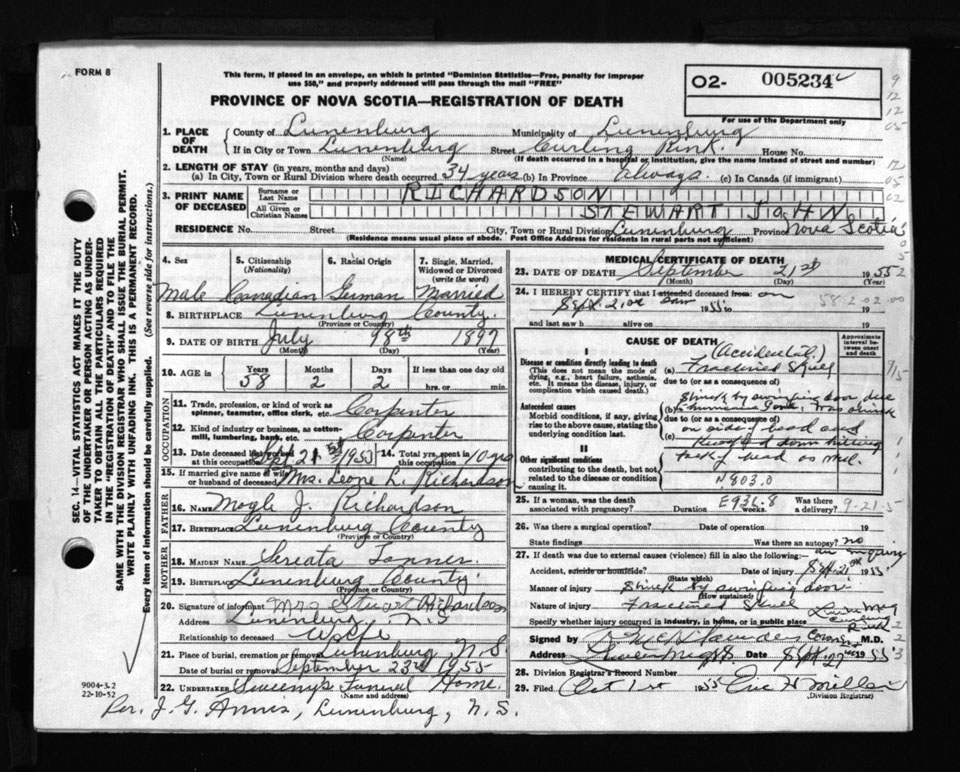 FORM 8
This form, if placed in an envelope, on which is printed "Dominion Statistics—Free, penalty for improper
use $50," and properly addressed will pass through the mail "FREE"
O2- 005234
For use of the Department only
PROVINCE OF NOVA SCOTIA—REGISTRATION OF DEATH
1. PLACE OF DEATH { County of Lunenburg Municipality of Lunenburg
If in City or Town Lunenburg Street Curling Rink. House No.
(Name) (If death occurred in a hospital or institution, give the name instead of street and number)
2. LENGTH OF STAY (in years, months and days)
(a) In City, Town or Rural Division where death occurred 34 years (b) In Province Always. (c) In Canada (if immigrant)
3. PRINT NAME OF DECEASED { Surname or Last Name RICHARDSON
All Given or Christian Names STEWART JOHN
RESIDENCE No. Street City, Town or Rural Division Lunenburg Province Nova Scotia
(Residence means usual place of abode. Post Office Address for residents in rural parts not sufficient)
4. Sex 5. Citizenship (Nationality) 6. Racial Origin 7. Single, Married, Widowed or Divorced (write the word)
Male Canadian German Married
8. BIRTHPLACE Lunenburg County.
(Province or Country)
9. DATE OF BIRTH July 1897
(Month) (Day) (Year)
10. AGE in { Years Months Days If less than one day old
58 2 2 hrs. or min.
OCCUPATION
11. Trade, profession, or kind of work as spinner, teamster, office clerk, etc. Carpenter
12. Kind of industry or business, as cotton-mill, lumbering, bank, etc. Carpenter
13. Date deceased last worked at this occupation Sep 21st 14. Total yrs. spent in this occupation 10 yrs
15. If married give name of wife or husband of deceased Mrs. Leone L. Richardson
FATHER
16. NAME J. Richardson
17. BIRTHPLACE Lunenburg County
(Province or Country)
MOTHER
18. MAIDEN NAME
19. BIRTHPLACE Lunenburg County.
(Province or Country)
20. Signature of informant Mrs Stuart Richardson
Address Lunenburg N.S
Relationship to deceased Wife
21. Place of burial, cremation or removal Lunenburg N.S.
Date of burial or removal September 23rd 1955
22. UNDERTAKER Sweeny's Funeral Home.
(Name and address)
Rev. J. G. Lunenburg, N.S.
9004-3.2
22-10-52
SEC. 14—VITAL STATISTICS ACT MAKES IT THE DUTY
OF THE UNDERTAKER OR PERSON ACTING AS UNDER-
TAKER TO OBTAIN ALL THE PARTICULARS REQUIRED
IN THE "REGISTRATION OF DEATH" AND TO FILE THE
SAME WITH THE DIVISION REGISTRAR WHO SHALL ISSUE THE BURIAL PERMIT.
WRITE PLAINLY WITH UNFADING INK. THIS IS A PERMANENT RECORD.
Every item of information should be carefully supplied. (See reverse side for instructions.)
MEDICAL CERTIFICATE OF DEATH
23. DATE OF DEATH September 21st 1955
(Month) (Day) (Year)
24. I HEREBY CERTIFY that I attended deceased from: on
Sept. 21 1955 to 19
and last saw h alive on 19
58 2-02-00
CAUSE OF DEATH
Approximate interval between onset and death
I
Disease or condition directly leading to death
(This does not mean the mode of dying, e.g., heart failure, asthenia, etc. It means the disease, injury, or complication which caused death.)
(Accidental)
(a) Fractured Skull
due to (or as a consequence of)
Antecedent causes
Morbid conditions, if any, giving rise to the above cause, stating the underlying condition last.
Struck by swinging door due
(b) was struck
due to (or as a consequence of)
on side of head and
(c) knocked down hitting
back of head as well.
II
Other significant conditions
contributing to the death, but not related to the disease or condition causing it.
N803.0
25. If a woman, was the death associated with pregnancy? Duration weeks. Was there a delivery?
9-21-5
26. Was there a surgical operation? Date of operation 19
State findings Was there an autopsy? no
27. If death was due to external causes (violence) fill in also the following:— an inquiry
Accident, suicide or homicide? Date of injury Sept 21st 1955
(State which)
Manner of injury Struck by swinging door
(How sustained)
Nature of injury Fractured Skull
Specify whether injury occurred in industry, in home, or in public place
Signed by Saunders Coroner M.D.
Address Date Sept. 27 1955
28. Division Registrar's Record Number
29. Filed Oct 1st 1955
(Division Registrar)